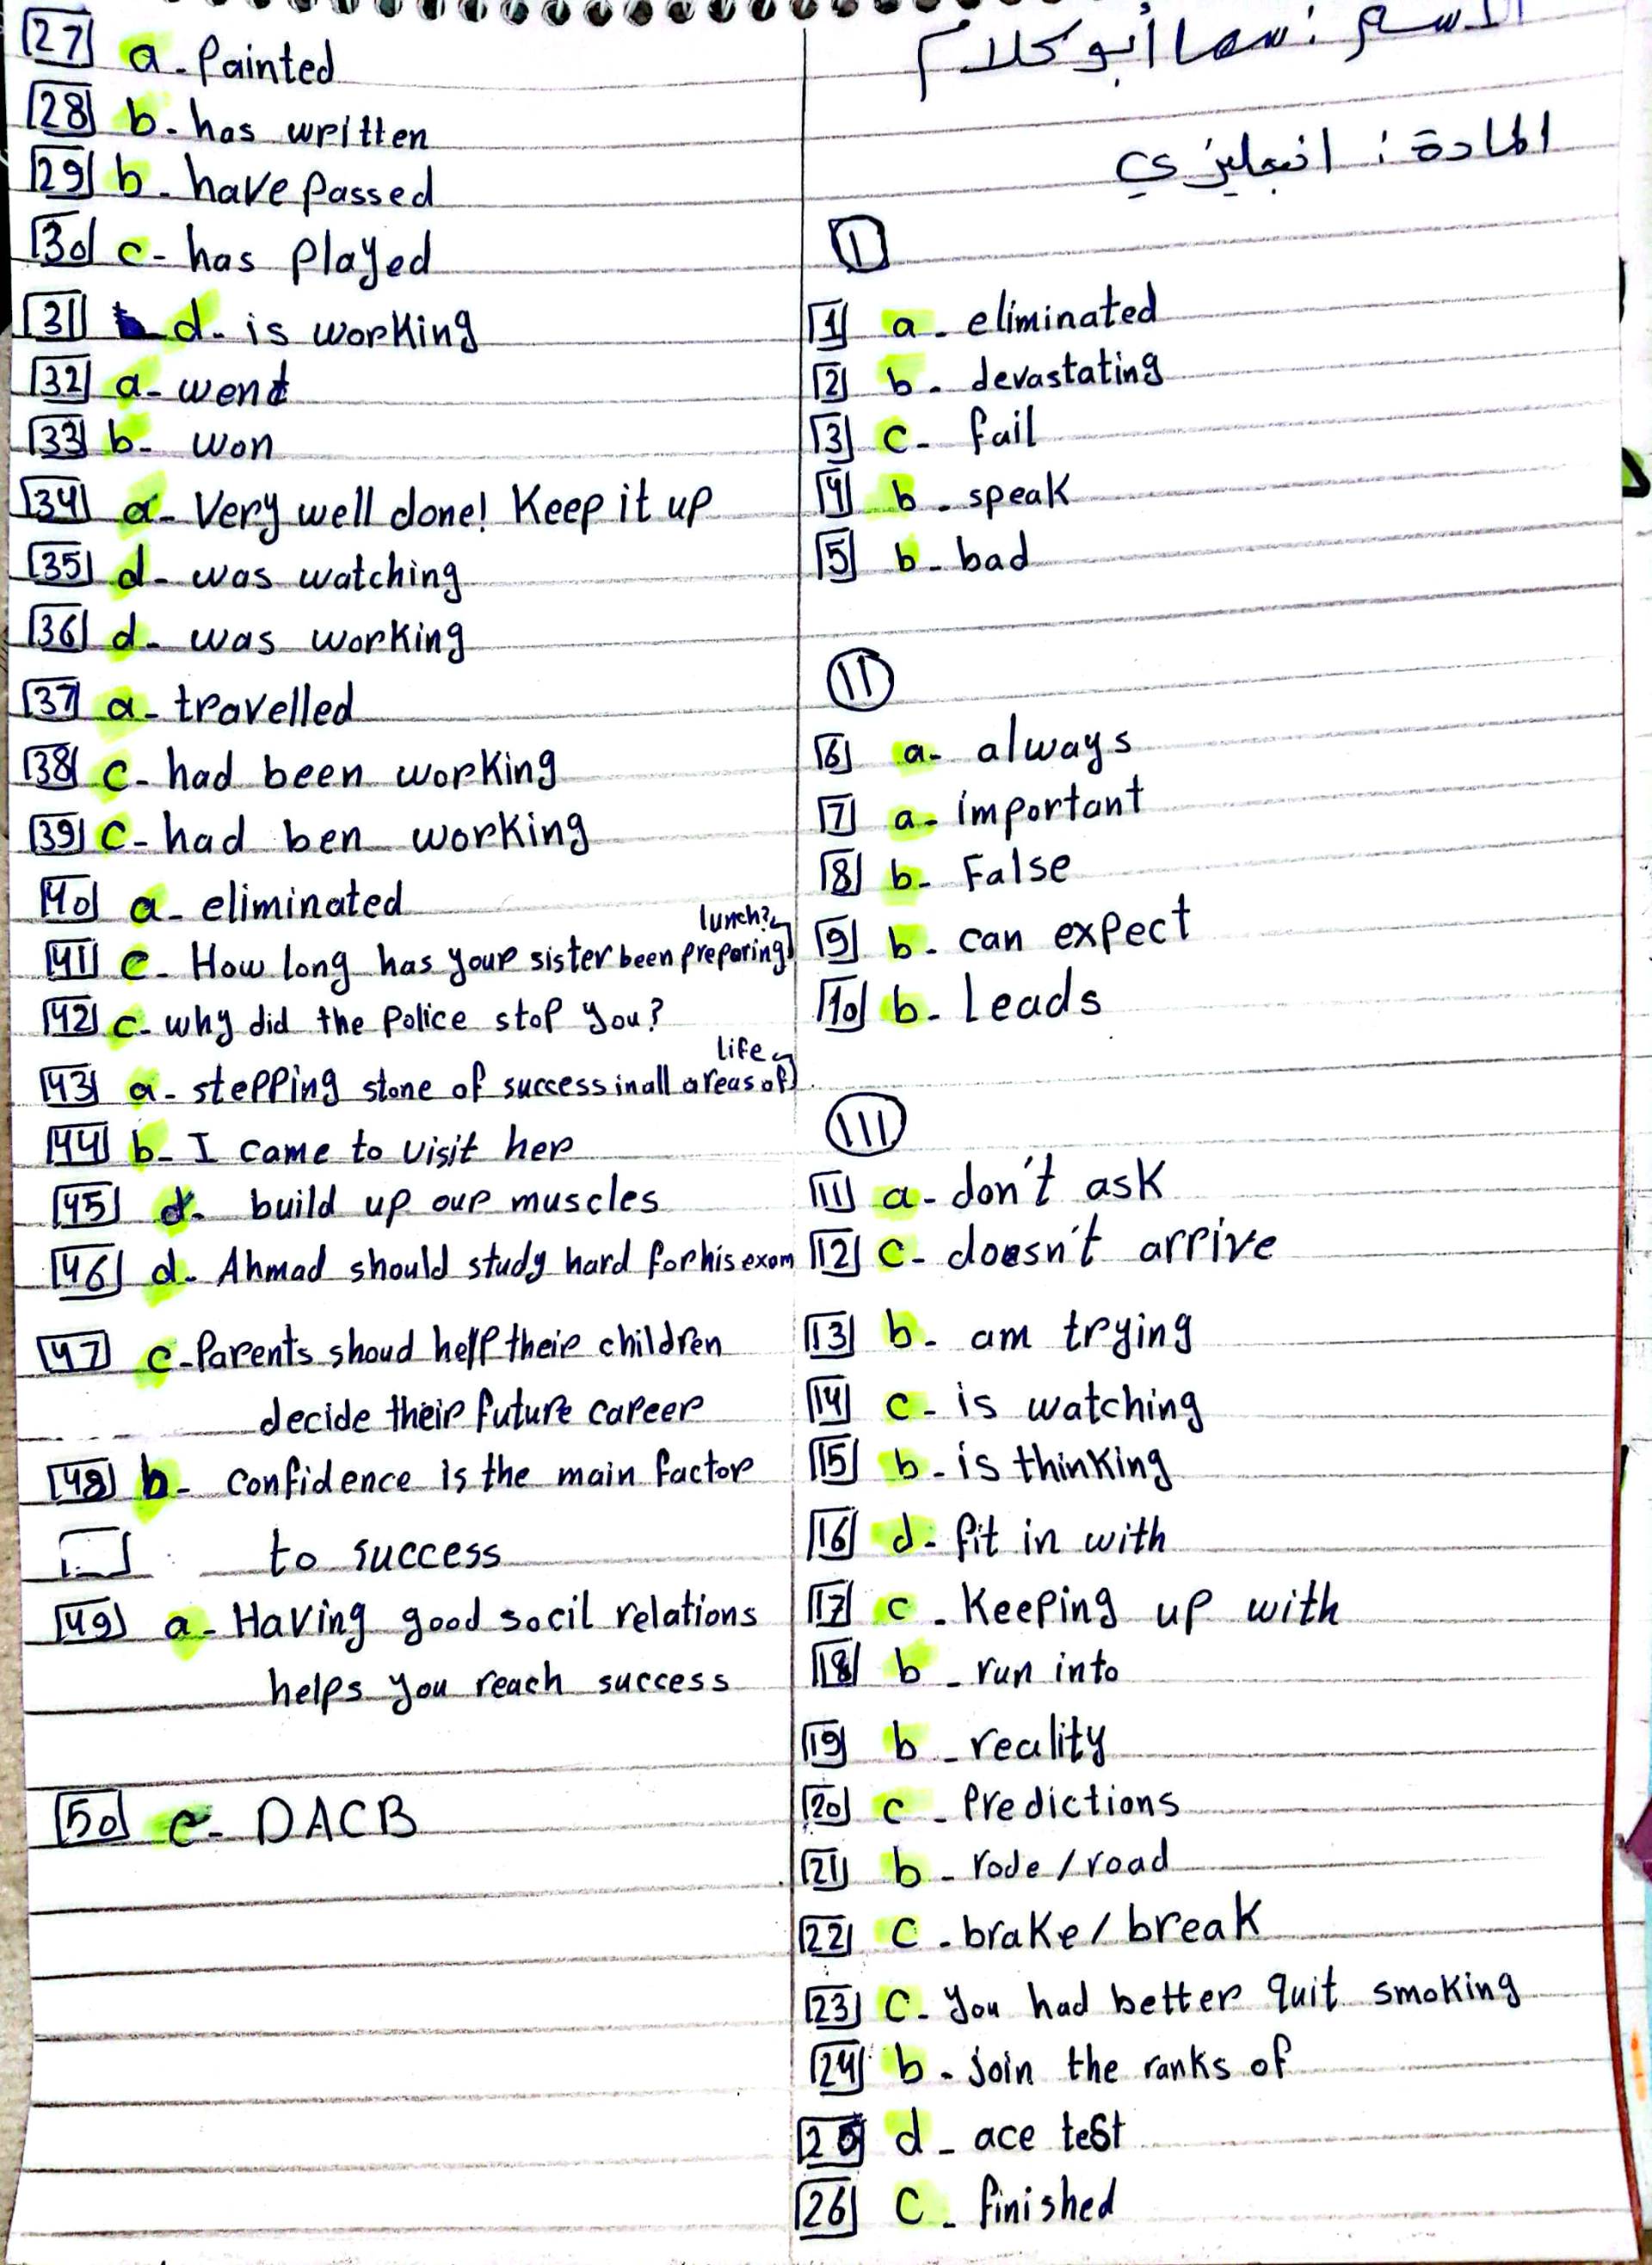 الاسم : سما أبو كلام
المادة : انجليزي
I
1 a - eliminated
2 b - devastating
3 c - fail
4 b - speak
5 b - bad
II
6 a - always
7 a - important
8 b - False
9 b - can expect
10 b - Leads
III
11 a - don't ask
12 c - doesn't arrive
13 b - am trying
14 c - is watching
15 b - is thinking
16 d - fit in with
17 c - Keeping up with
18 b - run into
19 b - reality
20 c - Predictions
21 b - rode / road
22 c - brake / break
23 c - You had better quit smoking
24 b - join the ranks of
25 d - ace test
26 c - finished
27 a - Painted
28 b - has written
29 b - have passed
30 c - has played
31 d - is working
32 a - went
33 b - won
34 a - Very well done! Keep it up
35 d - was watching
36 d - was working
37 a - travelled
38 c - had been working
39 c - had ben working
40 a - eliminated
41 c - How long has your sister been preparing lunch?
42 c - why did the Police stop you?
43 a - stepping stone of success in all areas of life
44 b - I came to visit her
45 d - build up our muscles
46 d - Ahmad should study hard for his exam
47 c - Parents shoud help their children
decide their future career
48 b - confidence is the main factor
to success
49 a - Having good socil relations
helps you reach success
50 c - DACB